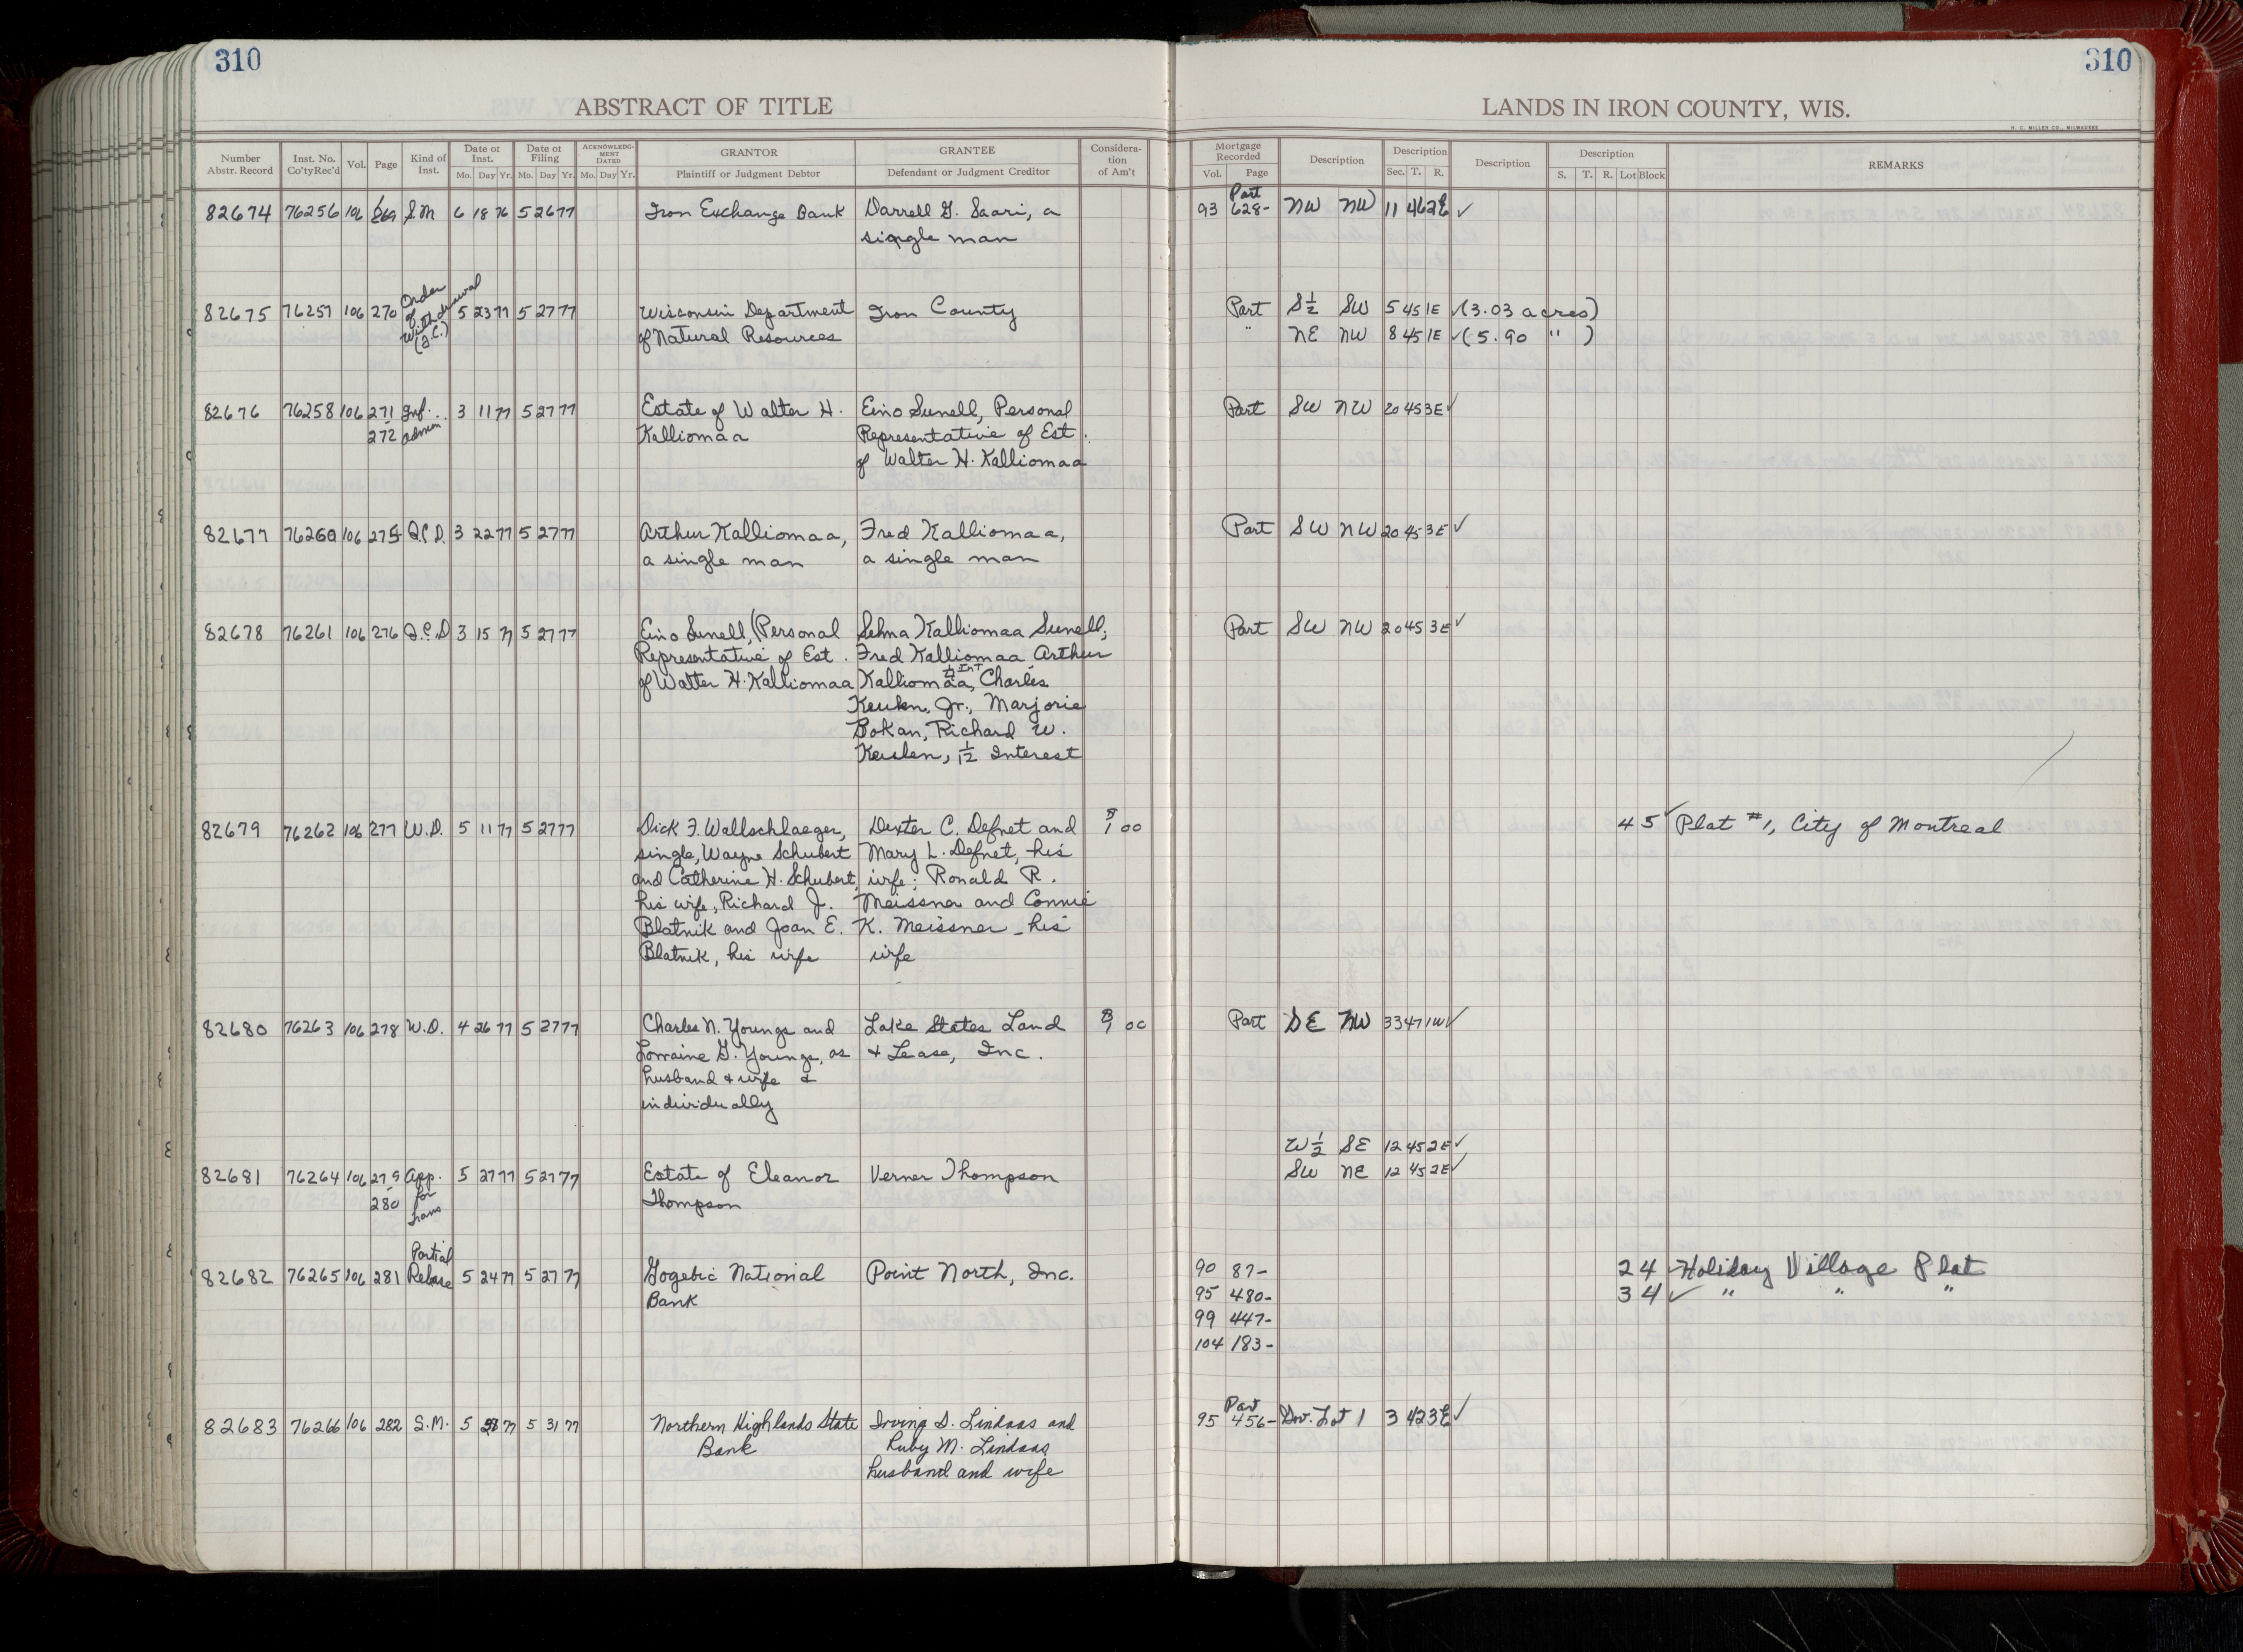 310
310
ABSTRACT OF TITLE
LANDS IN IRON COUNTY, WIS.
H. C. MILLER CO., MILWAUKEE
Number Abstr. Record | Inst. No. Co'ty Rec'd | Vol. | Page | Kind of Inst. | Date of Inst. Mo. Day Yr. | Date of Filing Mo. Day Yr. | ACKNOWLEDGMENT DATED Mo. Day Yr. | GRANTOR Plaintiff or Judgment Debtor | GRANTEE Defendant or Judgment Creditor | Consideration of Am't | Mortgage Recorded Vol. Page | Description | Description Sec. T. R. | Description | Description S. T. R. Lot Block | REMARKS
Part
82674 76256 106 269 S.M 6 18 76 5 26 77 Iron Exchange Bank Darrell G. Saari, a 93 628- NW NW 11 46 2E ✓
single man
82675 76257 106 270 Order of Withdrawal (F.C.) 5 23 77 5 27 77 Wisconsin Department Iron County Part S½ SW 5 45 1E ✓ (3.03 acres)
of Natural Resources " NE NW 8 45 1E ✓ (5.90 " )
82676 76258 106 271 Inf. 3 11 77 5 27 77 Estate of Walter H. Eino Sunell, Personal Part SW NW 20 45 3E ✓
272 admin Kalliomaa Representative of Est.
of Walter H. Kalliomaa
82677 76260 106 275 Q.C.D. 3 22 77 5 27 77 Arthur Kalliomaa, Fred Kalliomaa, Part SW NW 20 45 3E ✓
a single man a single man
82678 76261 106 276 Q.C.D 3 15 77 5 27 77 Eino Sunell, (Personal Selma Kalliomaa Sunell, Part SW NW 20 45 3E ✓
Representative of Est. Fred Kalliomaa, Arthur
of Walter H. Kalliomaa Kalliomaa, Charles
Jr., Marjorie
Bokan, Richard W.
Keulen, 1/12 Interest
82679 76262 106 277 W.D. 5 11 77 5 27 77 Dick F. Wallschlaeger, Dexter C. Defnet and $1 00 4 5 ✓ Plat #1, City of Montreal
single, Wayne Schubert Mary L. Defnet, his
and Catherine H. Schubert, wife; Ronald R.
his wife, Richard J. Meissner and Connie
Blatnik and Joan E. K. Meissner, his
Blatnik, his wife wife
82680 76263 106 278 W.D. 4 26 77 5 27 77 Charles N. Youngs and Lake States Land $1 00 Part SE NW 33 47 1W ✓
Lorraine G. Youngs, as + Lease, Inc.
husband + wife +
individually
W½ SE 12 45 2E ✓
SW NE 12 45 2E ✓
82681 76264 106 279 App. 5 27 77 5 27 77 Estate of Eleanor Verner Thompson
280 for Trans Thompson
Partial
82682 76265 106 281 Release 5 24 77 5 27 77 Gogebic National Point North, Inc. 90 87- 2 4 ✓ Holiday Village Plat
Bank 95 480- 3 4 ✓ " " "
99 447-
104 183-
Part
82683 76266 106 282 S.M. 5 77 5 31 77 Northern Highlands State Irving S. Lindaas and 95 456- Gov. Lot 1 3 42 3E ✓
Bank Ruby M. Lindaas,
husband and wife